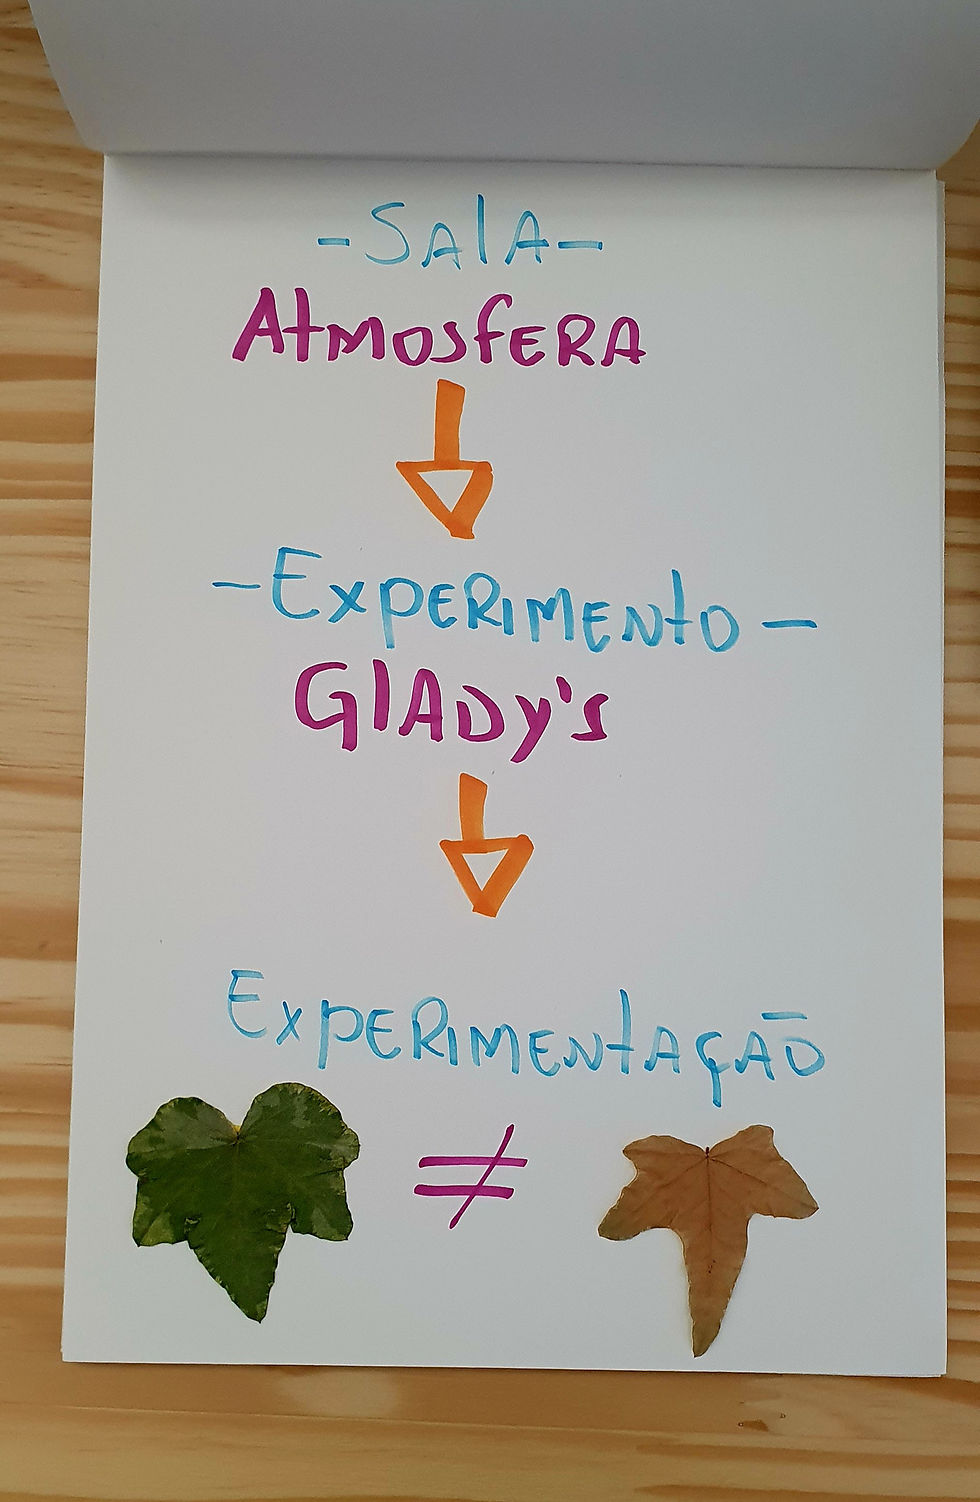 - Sala -
Atmosfera
- Experimento -
Glady's
Experimentação
≠